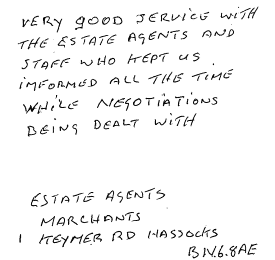 VERY GOOD SERVICE WITH
THE ESTATE AGENTS AND
STAFF WHO KEPT US
IMFORMED ALL THE TIME
WHILE NEGOTIATIONS
BEING DEALT WITH
ESTATE AGENTS
MARCHANTS
1 KEYMER RD HASSOCKS
BN.6.8AE